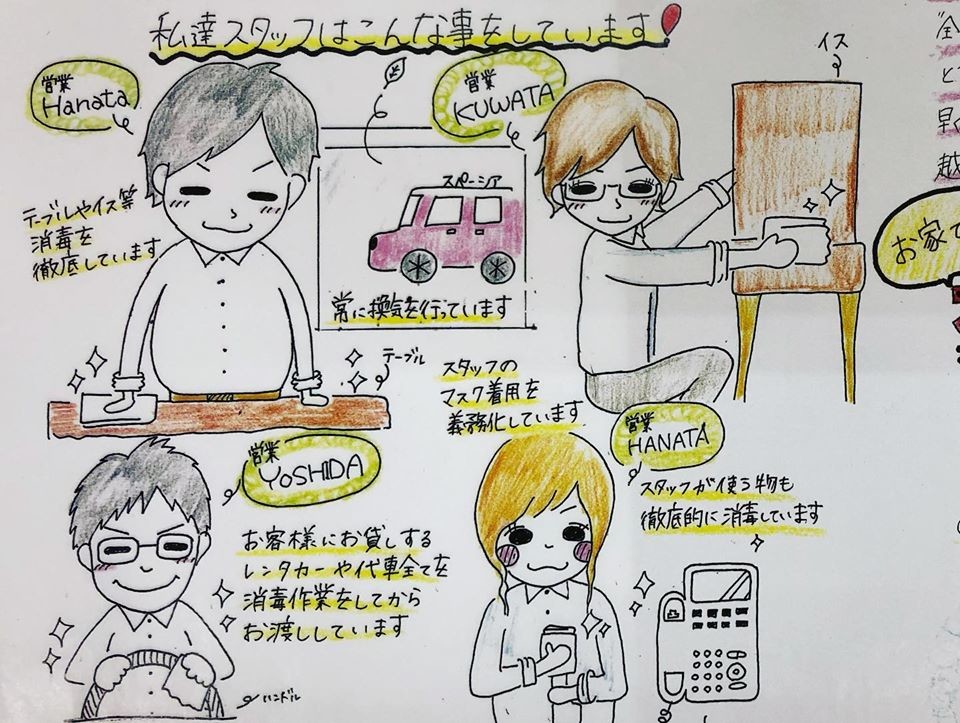 私達スタッフはこんな事をしています
営業
Hanata
テーブルやイス等
消毒を
徹底しています
営業
KUWATA
イス
スペーシア
常に換気を行っています
テーブル
スタッフの
マスク着用を
義務化しています
営業
YOSHIDA
お客様にお貸しする
レンタカーや代車全てを
消毒作業をしてから
お渡ししています
ハンドル
営業
HANATA
スタッフが使う物も
徹底的に消毒しています
"全
と
早く
越
お家で